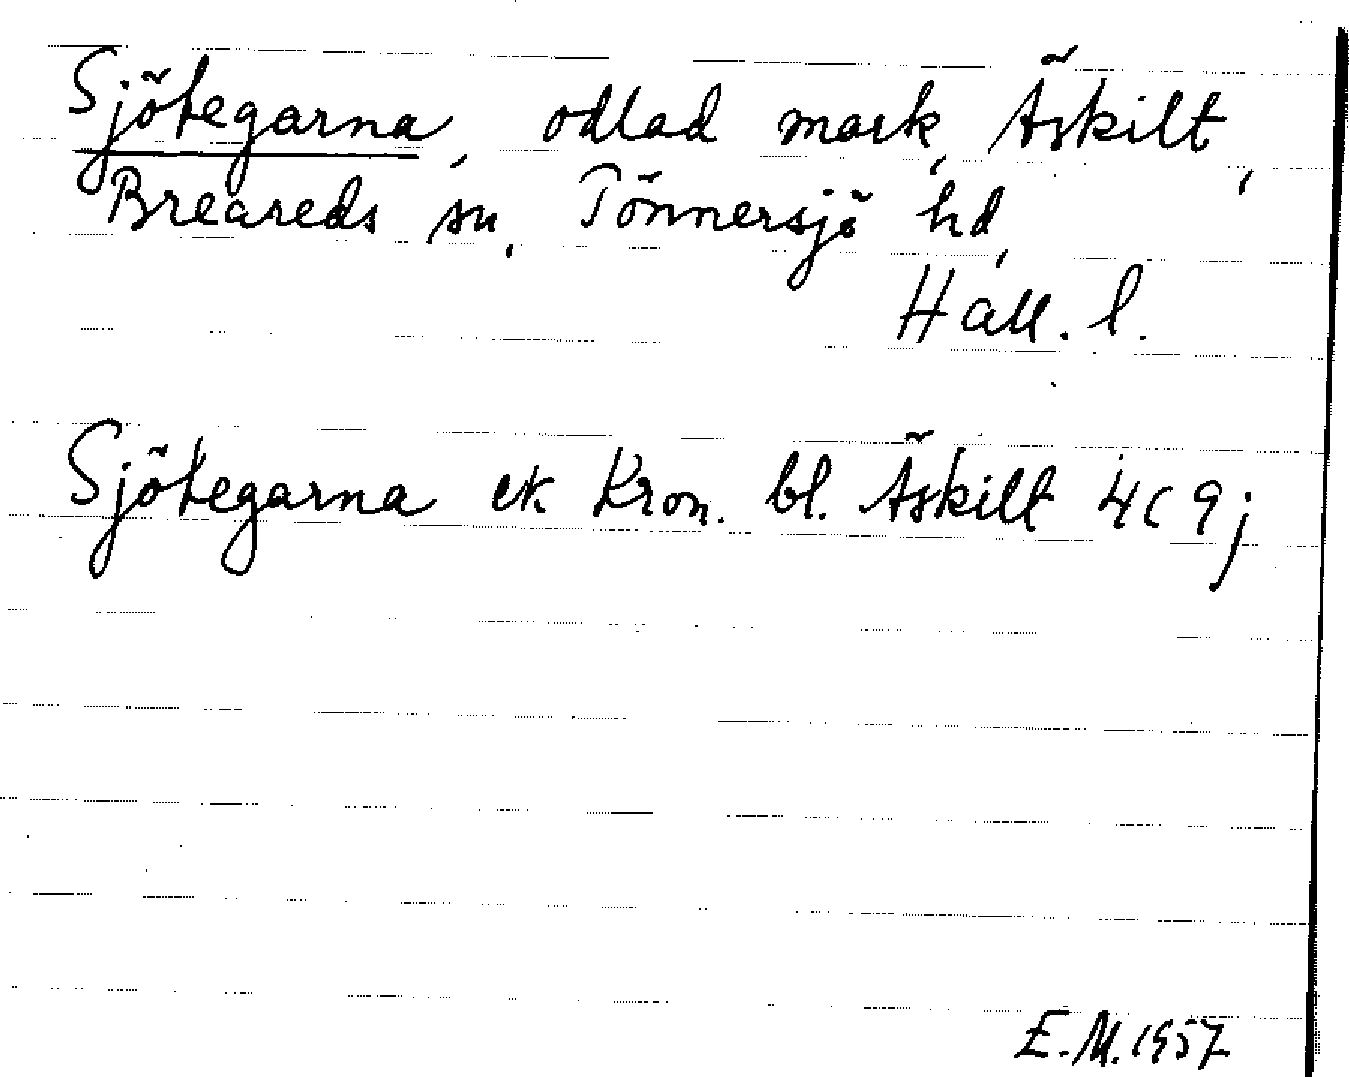 Sjötegarna, odlad mark, Äskilt,
Breareds sn, Tönnersjö hd,
Hall. l.
Sjötegarna ek Kron. bl. Äskilt 4c9j
E.M. 1957